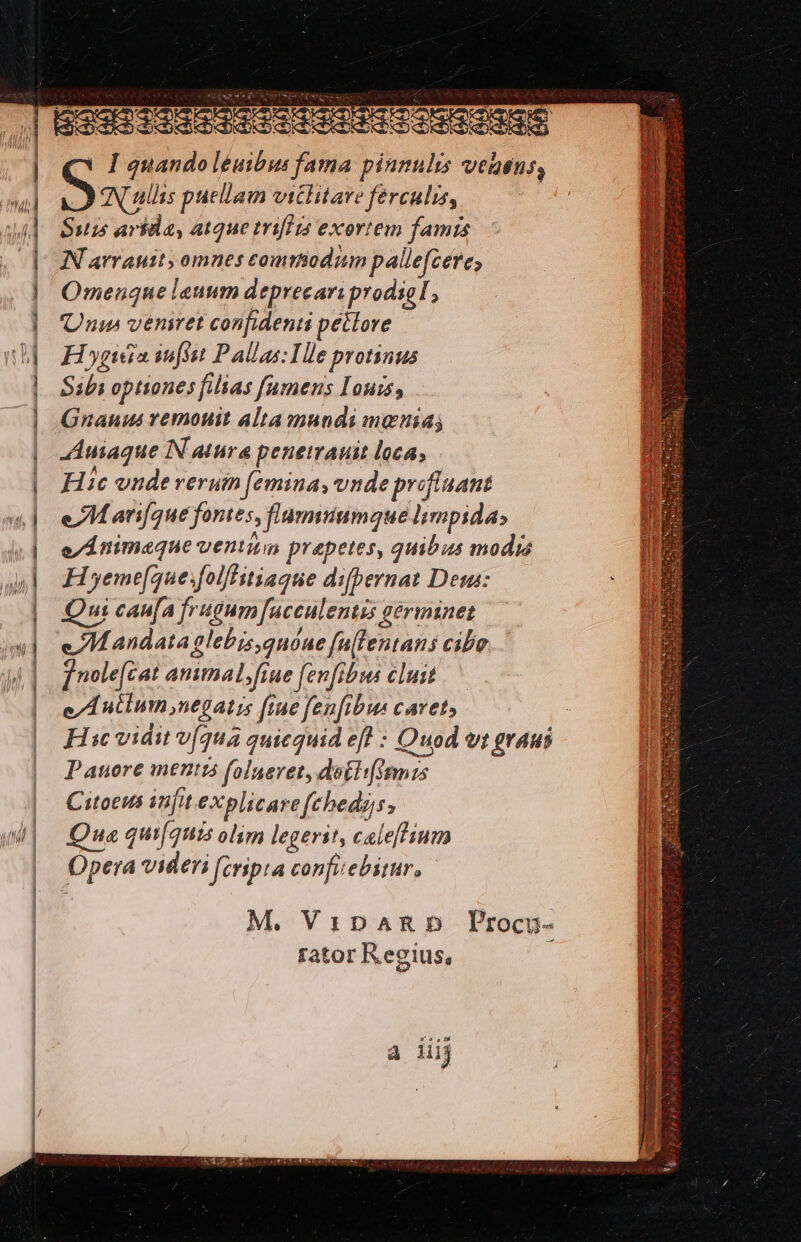 SI quando leuibus fama pinnulis vehens,
Nullis puellam victitare ferculis,
Sitis arida, atque tristis exortem famis
Narrauit, omnes commodùm pallescere,
Omenque lauum deprecari prodigI,
Vnus veniret confidenti pectore
Hygieia iussit Pallas: Ille protinus
Sibi optiones filias sumens Iouis,
Gnauus remouit alta mundi mœnia,
Auiaque Natura penetrauit loca,
Hic vnde rerum semina, vnde profluant
Marisque fontes, flumiumque limpidas
Animaque ventûm prapetes, quibus modis
Hyemesque, solstitiaque dispernat Deus:
Qui causa frugum succulentis germinet
Mandata glebis, quóue sustentans cibo
Inolescat animal, siue sensibus cluit
Auctum, negatis siue sensibus caret,
Hic vidit vsquā quicquid est : Quod vt graui
Pauore mentis solueret, doctissimis
Citoeus insit explicare schedijs,
Qua quisquis olim legerit, calestium
Opera videri scripta confitebitur.
M. VIDARD Procu-
rator Regius,
a iiij